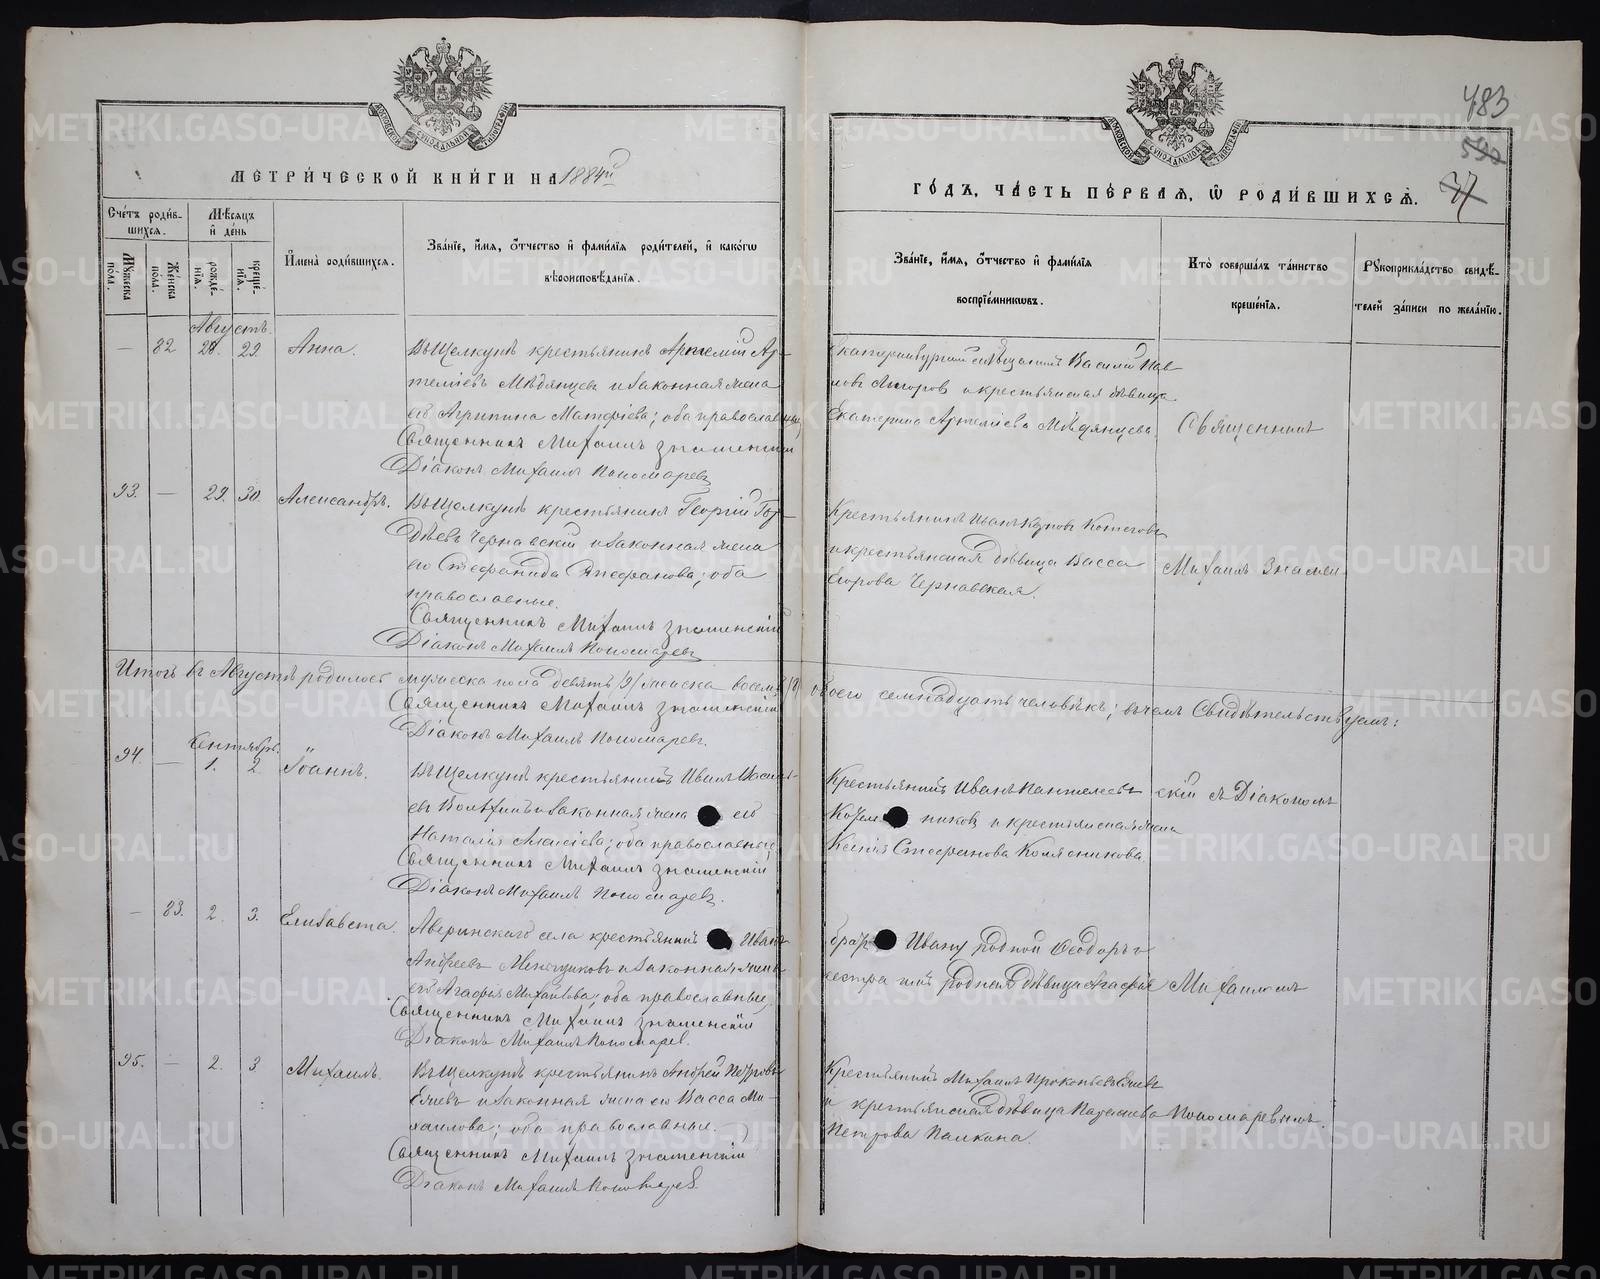 483
590
37
МОСКОВСКОЙ СУНОДАЛЬНОЙ ТИПОГРАФІИ
МОСКОВСКОЙ СУНОДАЛЬНОЙ ТИПОГРАФІИ
МЕТРИ́ЧЕСКОЙ КНИ́ГИ НА 1884й
ГО́ДЪ, ЧА́СТЬ ПЕ́РВАЯ, Ѡ РОДИ́ВШИХСЯ.
Сче́тъ роди́в-
шихся.
Мѣ́сяцъ
и҆ де́нь
Мꙋ́жеска
пола̀.
Же́нска
пола̀.
рожде́-
нїѧ.
креще́-
нїѧ.
И҆мена̀ роди́вшихся.
Зва́нїе, и҆́мѧ, ѻ҆́тчество и҆ фами́лїѧ роди́телей, и҆ како́гѡ
вѣроисповѣ́данїѧ.
Зва́нїе, и҆́мѧ, ѻ҆́тчество и҆ фами́лїѧ
воспрїе́мникѡвъ.
Кто̀ соверша́лъ та́инство
креще́нїѧ.
Рꙋкоприкла́дство свидѣ́-
телей за́писи по жела́нїю.
Августъ.
— 82 28. 29. Анна.
Въ Щелкунѣ крестьянинъ Артемій Ар-
теміевъ Мѣдянцевъ и законная жена
его Агрипина Матѳіева; оба православные,
Священникъ Михаилъ Знаменскій
Діаконъ Михаилъ Пономаревъ
Екатеринбургскій мѣщанинъ Василій Пав-
ловъ и крестьянская дѣвица
Екатерина Артеміева Мѣдянцева.
Священникъ
93. — 29. 30. Александръ.
Въ Щелкунѣ крестьянинъ Георгій Гор-
дѣевъ Чернавскій и законная жена
его Стефанида Стефанова; оба
православные.
Священникъ Михаилъ Знаменскій
Діаконъ Михаилъ Пономаревъ
Крестьянинъ Иванъ Котеговъ
и крестьянская дѣвица Васса
Егорова Чернавская.
Михаилъ Знамен-
Итого въ Августѣ родилось мужеска пола девять /9/ женска восемь /8/ обоего семнадцать человѣкъ; въ чемъ свидѣтельствуемъ:
Священникъ Михаилъ Знаменскій
Діаконъ Михаилъ Пономаревъ.
Сентябрь.
94. — 1. 2 Іоаннъ.
Въ Щелкунѣ крестьянинъ Иванъ Василь-
евъ и законная жена его
Наталія Алексіева; оба православные,
Священникъ Михаилъ Знаменскій
Діаконъ Михаилъ Пономаревъ.
Крестьянинъ Иванъ Пантелеевъ
никовъ и крестьянская жена
Ксенія Стефанова Колясникова
скій съ Діакономъ
— 83. 2. 3. Елизавета.
Аверинскаго села крестьянинъ Иванъ
Андреевъ Меньщиковъ и законная жена
его Агафія Михайлова; оба православные,
Священникъ Михаилъ Знаменскій
Діаконъ Михаилъ Пономаревъ.
братъ Ивану родной Ѳеодоръ и
сестра имъ родная дѣвица Агафія
Михаиломъ
95. — 2. 3 Михаилъ.
Въ Щелкунѣ крестьянинъ Андрей Петровъ
Еляевъ и законная жена его Васса Ми-
хаилова; оба православные.
Священникъ Михаилъ Знаменскій
Діаконъ Михаилъ Пономаревъ.
Крестьянинъ Михаилъ Прокопьевъ Еляевъ
и крестьянская дѣвица Параскева
Петрова Палкина.
Пономаревымъ.
METRIKI.GASO-URAL.RU